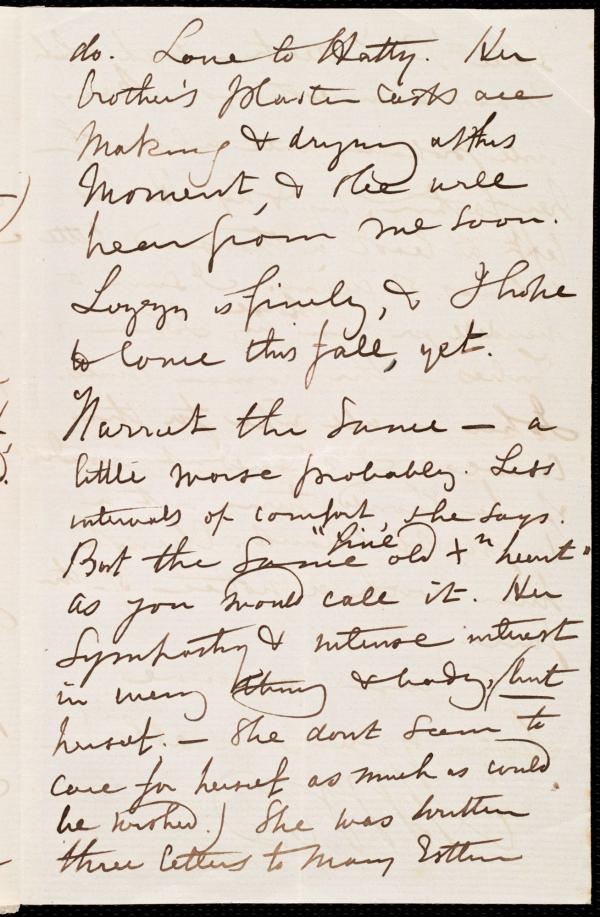 do. Love to Hatty. Her
brother's plaster casts are
making & drying at this
moment, & she will
hear from me soon.
is finely, & I hope
to come this fall, yet.
Harriet the same — a
little worse probably. Less
intervals of comfort, she says.
But the same "fine old Xn heart"
as you would call it. Her
sympathy & intense interest
in every thing & body, but
herself. — She dont seem to
care for herself as much as could
be wished.) She has written
three letters to Mary Esther